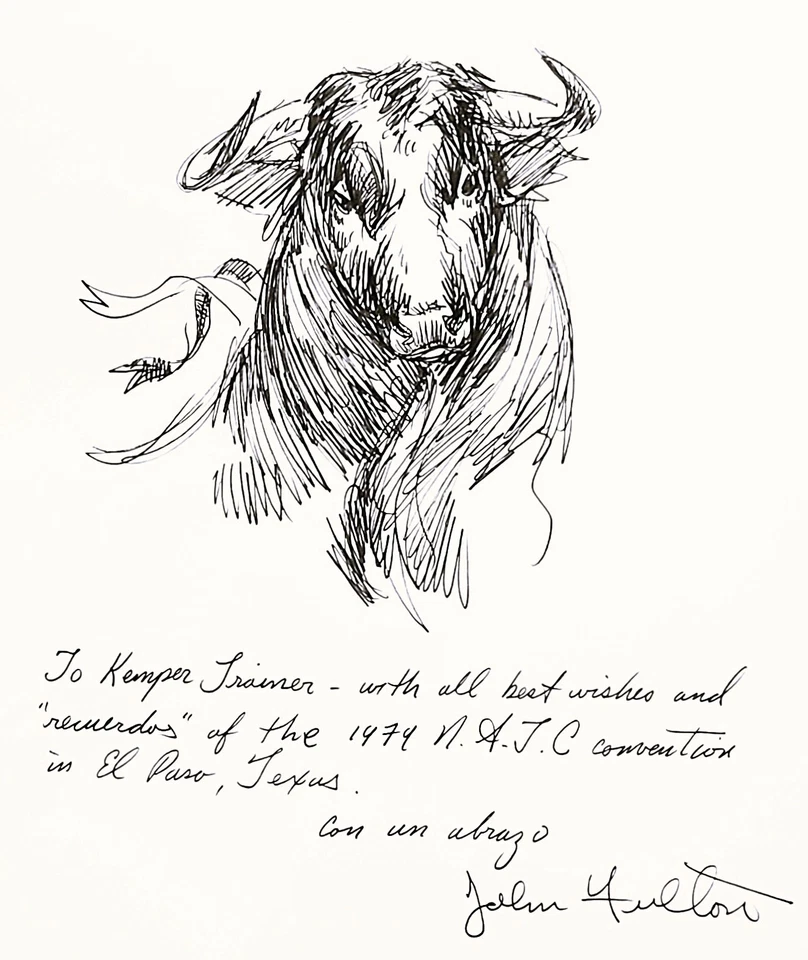 To Kemper Trainer - with all best wishes and
"recuerdos" of the 1979 N.A.T.C convention
in El Paso, Texas.
con un abrazo
John Fulton